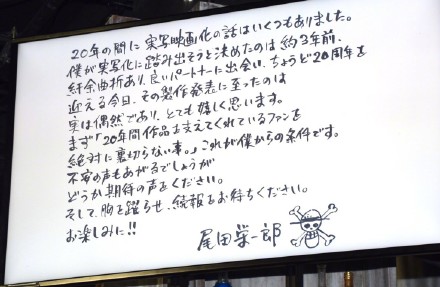 20年の間に実写映画化の話はいくつもありました。
僕が実写化に踏み出そうと決めたのは約3年前、
紆余曲折あり、良いパートナーに出会い、ちょうど20周年を
迎える今日、その製作発表に至ったのは
実は偶然であり、とても嬉しく思います。
まず「20年間作品を支えてくれているファンを
絶対に裏切らない事。」これが僕からの条件です。
不安の声もあがるでしょうが
どうか期待の声をください。
そして、胸を躍らせ、続報をお待ちください。
お楽しみに!!
尾田栄一郎